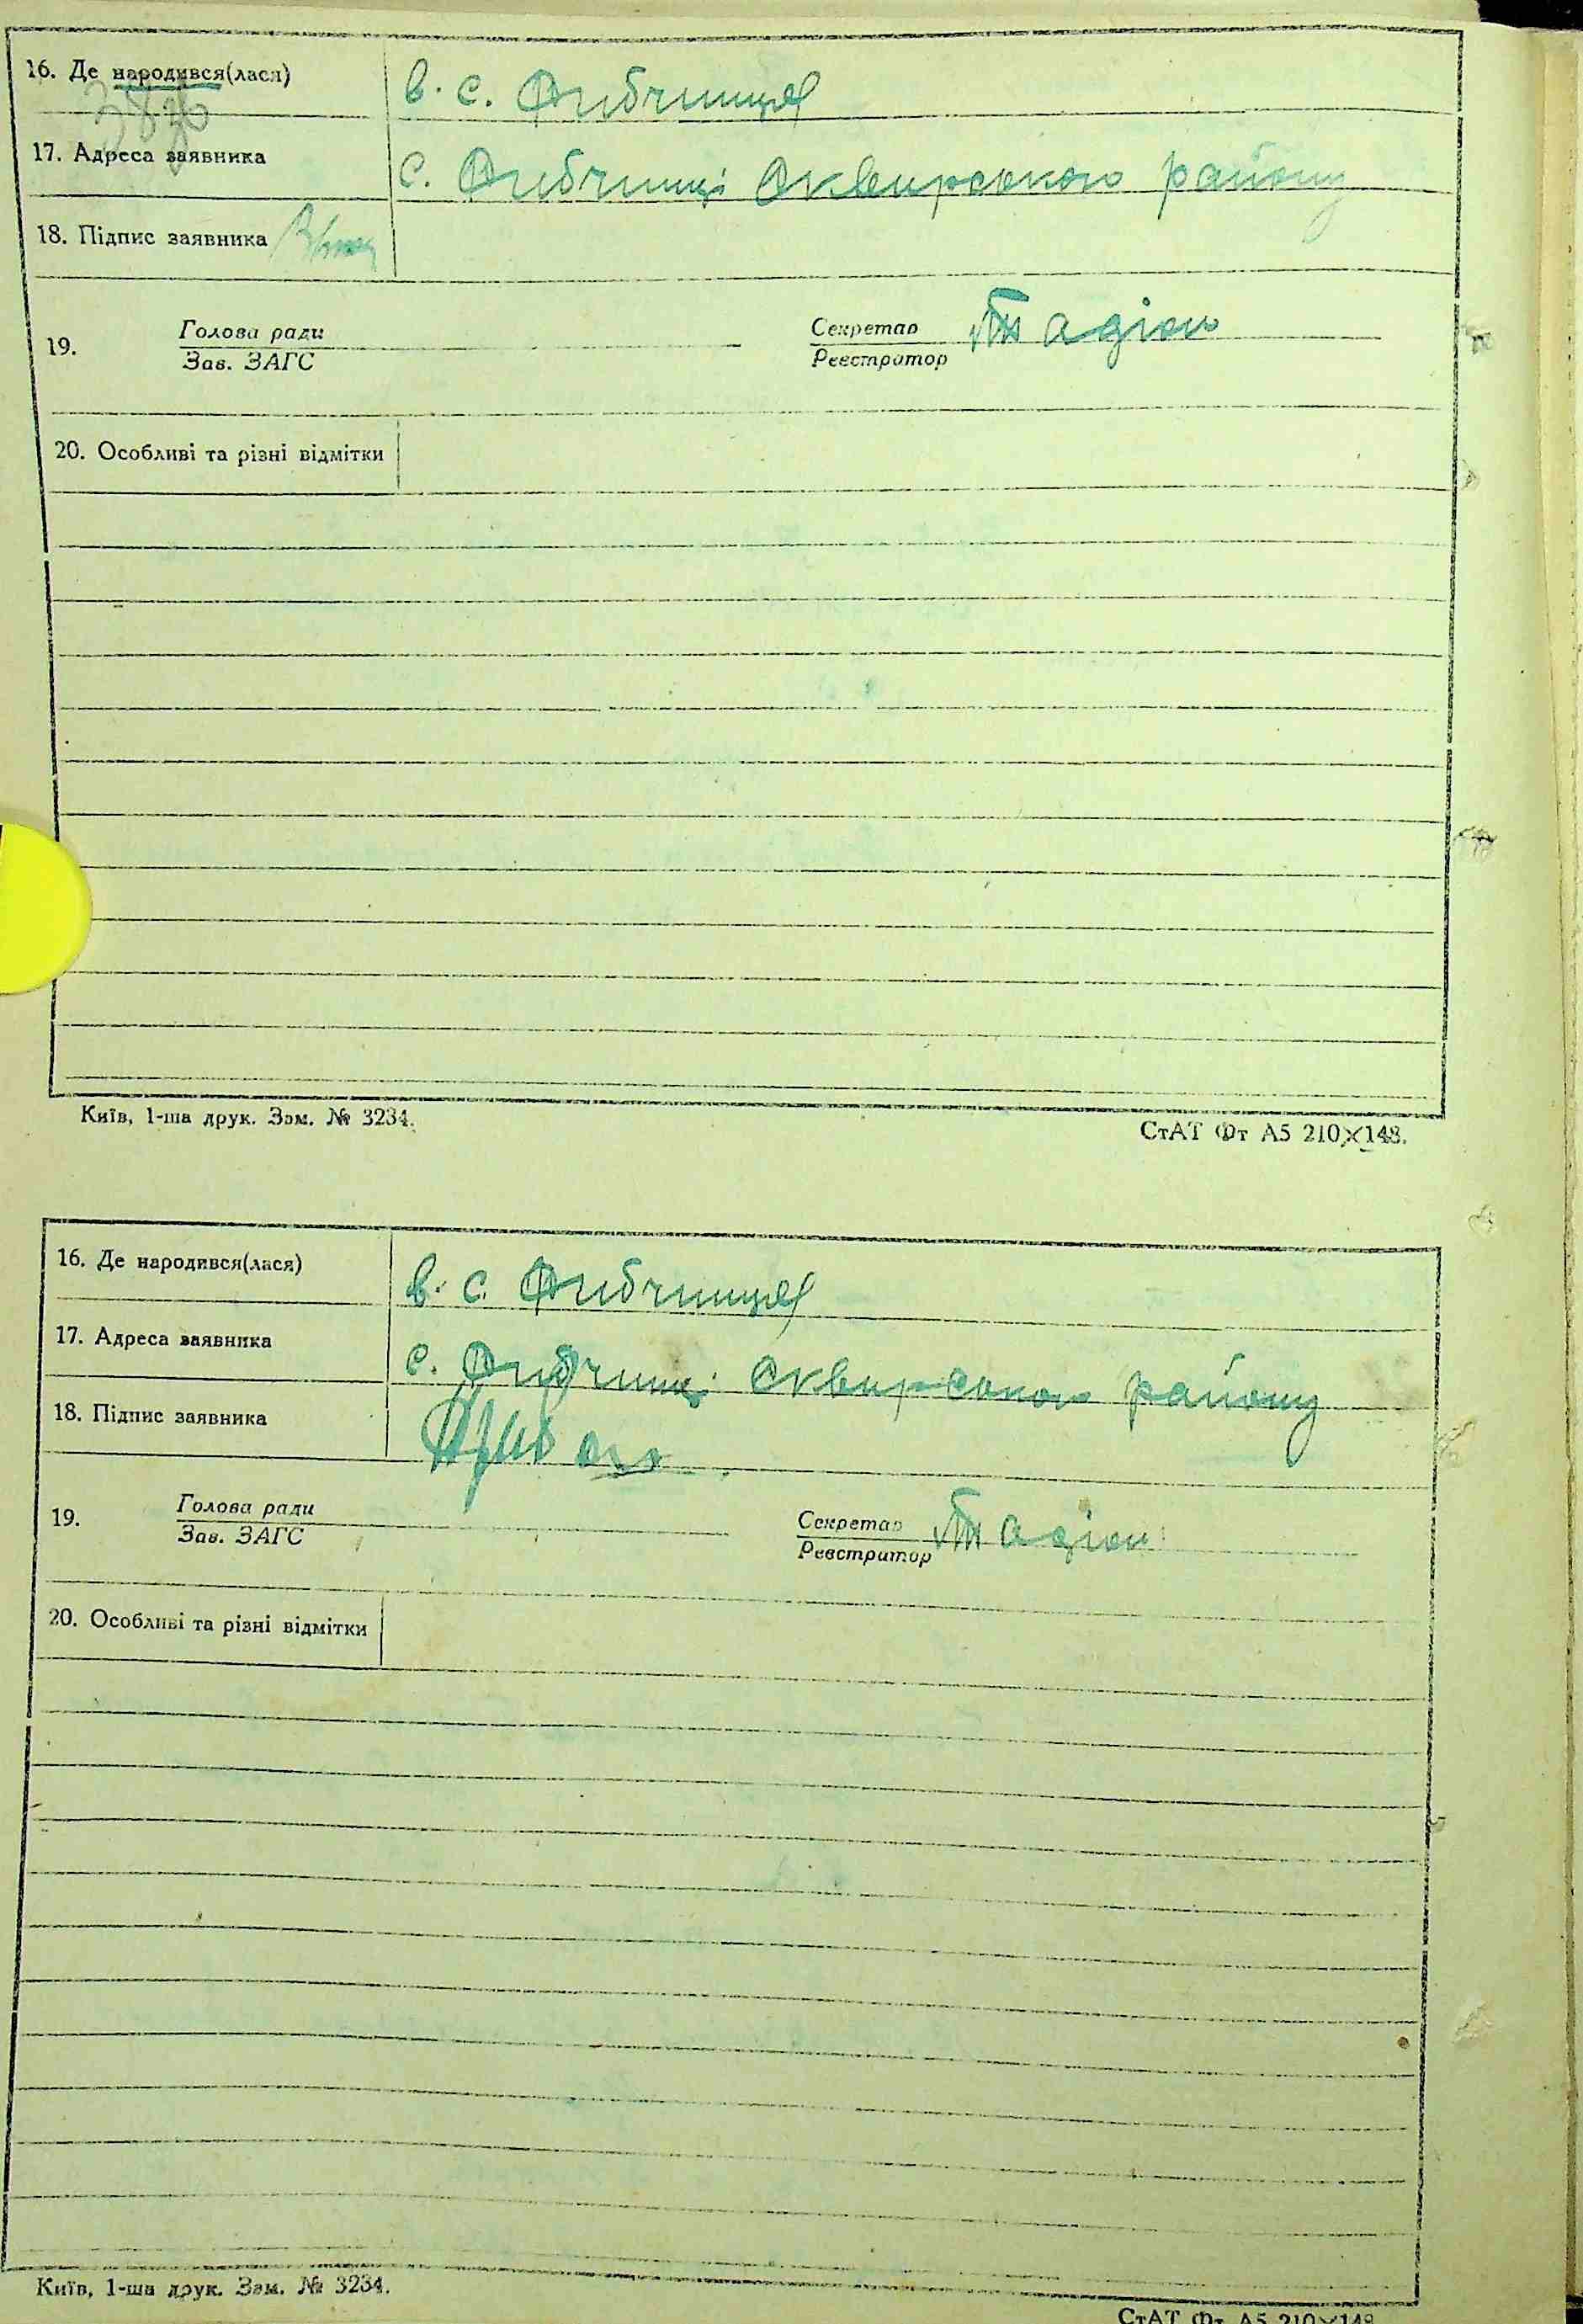 16. Де народився(лася)
в. с. Дибчинцях
17. Адреса заявника
с. Дибчинці Сквирського району
18. Підпис заявника
19.
Голова ради
Зав. ЗАГС
Секретар
Реєстратор
20. Особливі та різні відмітки
Київ, 1-ша друк. Зам. № 3234.
СтАТ Фт А5 210×148.
16. Де народився(лася)
в. с. Дибчинцях
17. Адреса заявника
с. Дибчинці Сквирського району
18. Підпис заявника
19.
Голова ради
Зав. ЗАГС
Секретар
Реєстратор
20. Особливі та різні відмітки
Київ, 1-ша друк. Зам. № 3234.
СтАТ Фт А5 210×148